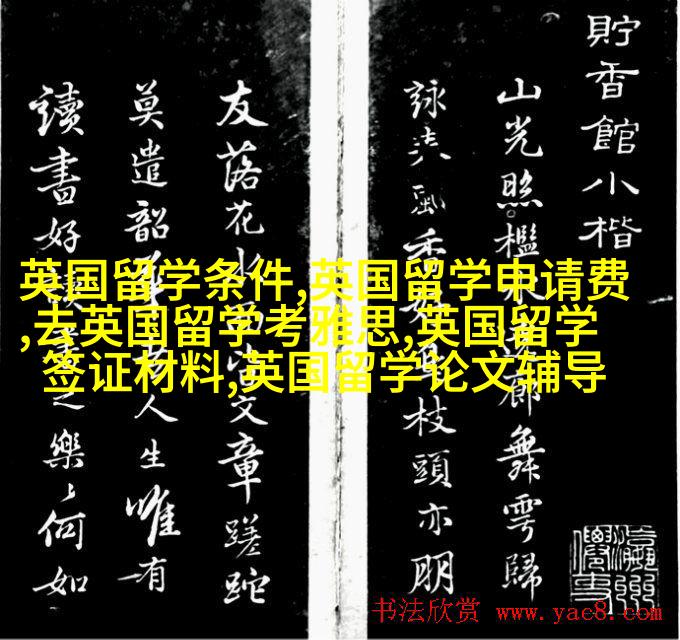 貯香館小楷
山光照檻水廊舞雩歸
詠春風香枝頭亦朋
友落花水文章蹉跎
莫遣韶人生唯有
讀書好讀之樂々何如
英国留学条件,英国留学申请费
,去英国留学考雅思,英国留学
签证材料,英国留学论文辅导
书法欣赏 www.yac8.com